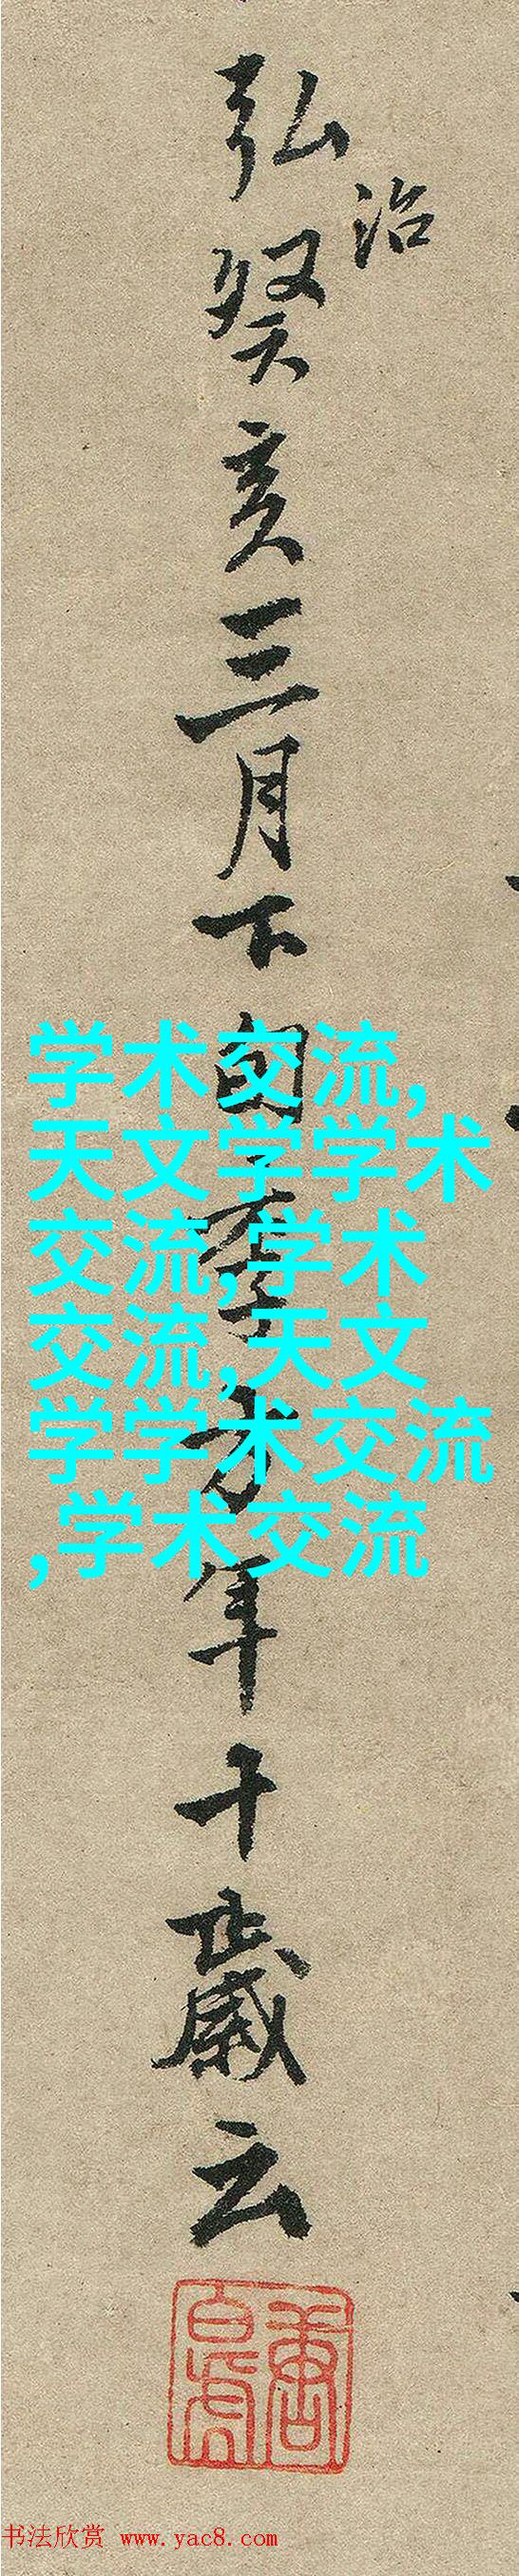 弘治癸亥三月下旬李方年十歲云
唐白虎
学术交流,
天文学学术
交流,学术
交流,天文
学学术交流
,学术交流
书法欣赏 www.yac8.com